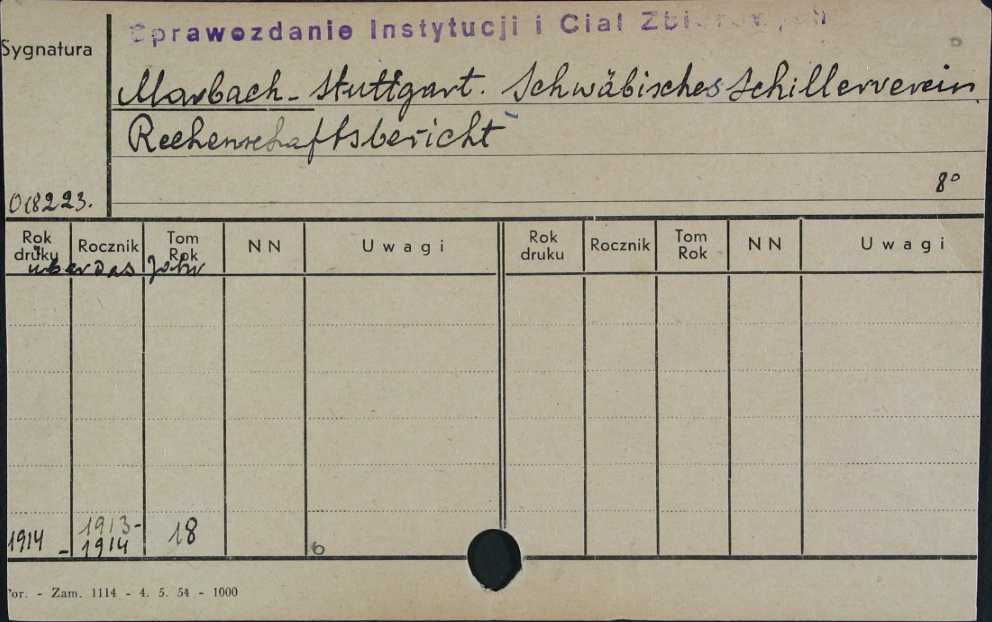 Sprawozdanie Instytucji i Ciał Zbiorowych
Sygnatura
Marbach - Stuttgart. Schwäbisches Schillerverein.
Rechenschaftsbericht
8°
018223.
Rok druku Rocznik Tom Rok NN Uwagi Rok druku Rocznik Tom Rok NN Uwagi
über das Jahr
1914 - 1913-1914 18 6
or. - Zam. 1114 - 4. 5. 54 - 1000